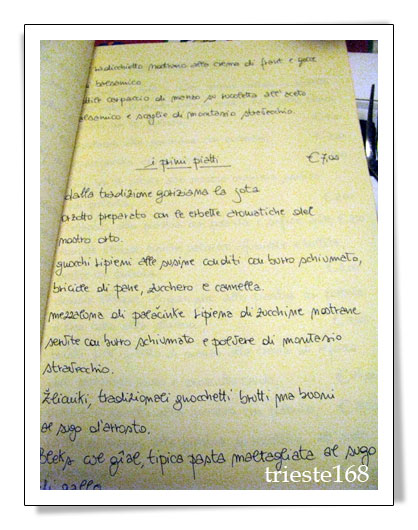 radicchietto nostrano alla crema di frant e gocce
balsamico
carpaccio di manzo su rucoletta all'aceto
balsamico e scaglie di montasio stravecchio.
i primi piatti €7,00
dalla tradizione goriziana la jota
orzotto preparato con le erbette aromatiche del
nostro orto.
gnocchi ripieni alle susine conditi con burro schiumato,
briciole di pane, zucchero e cannella.
mezzaluna di palačinke ripiena di zucchine nostrane
servite con burro schiumato e polvere di montasio
stravecchio.
Žlicniki, tradizionali gnocchetti brutti ma buoni
al sugo d'arrosto.
Bleks cul gjal, tipica pasta maltagliata al sugo
di gallo
trieste168